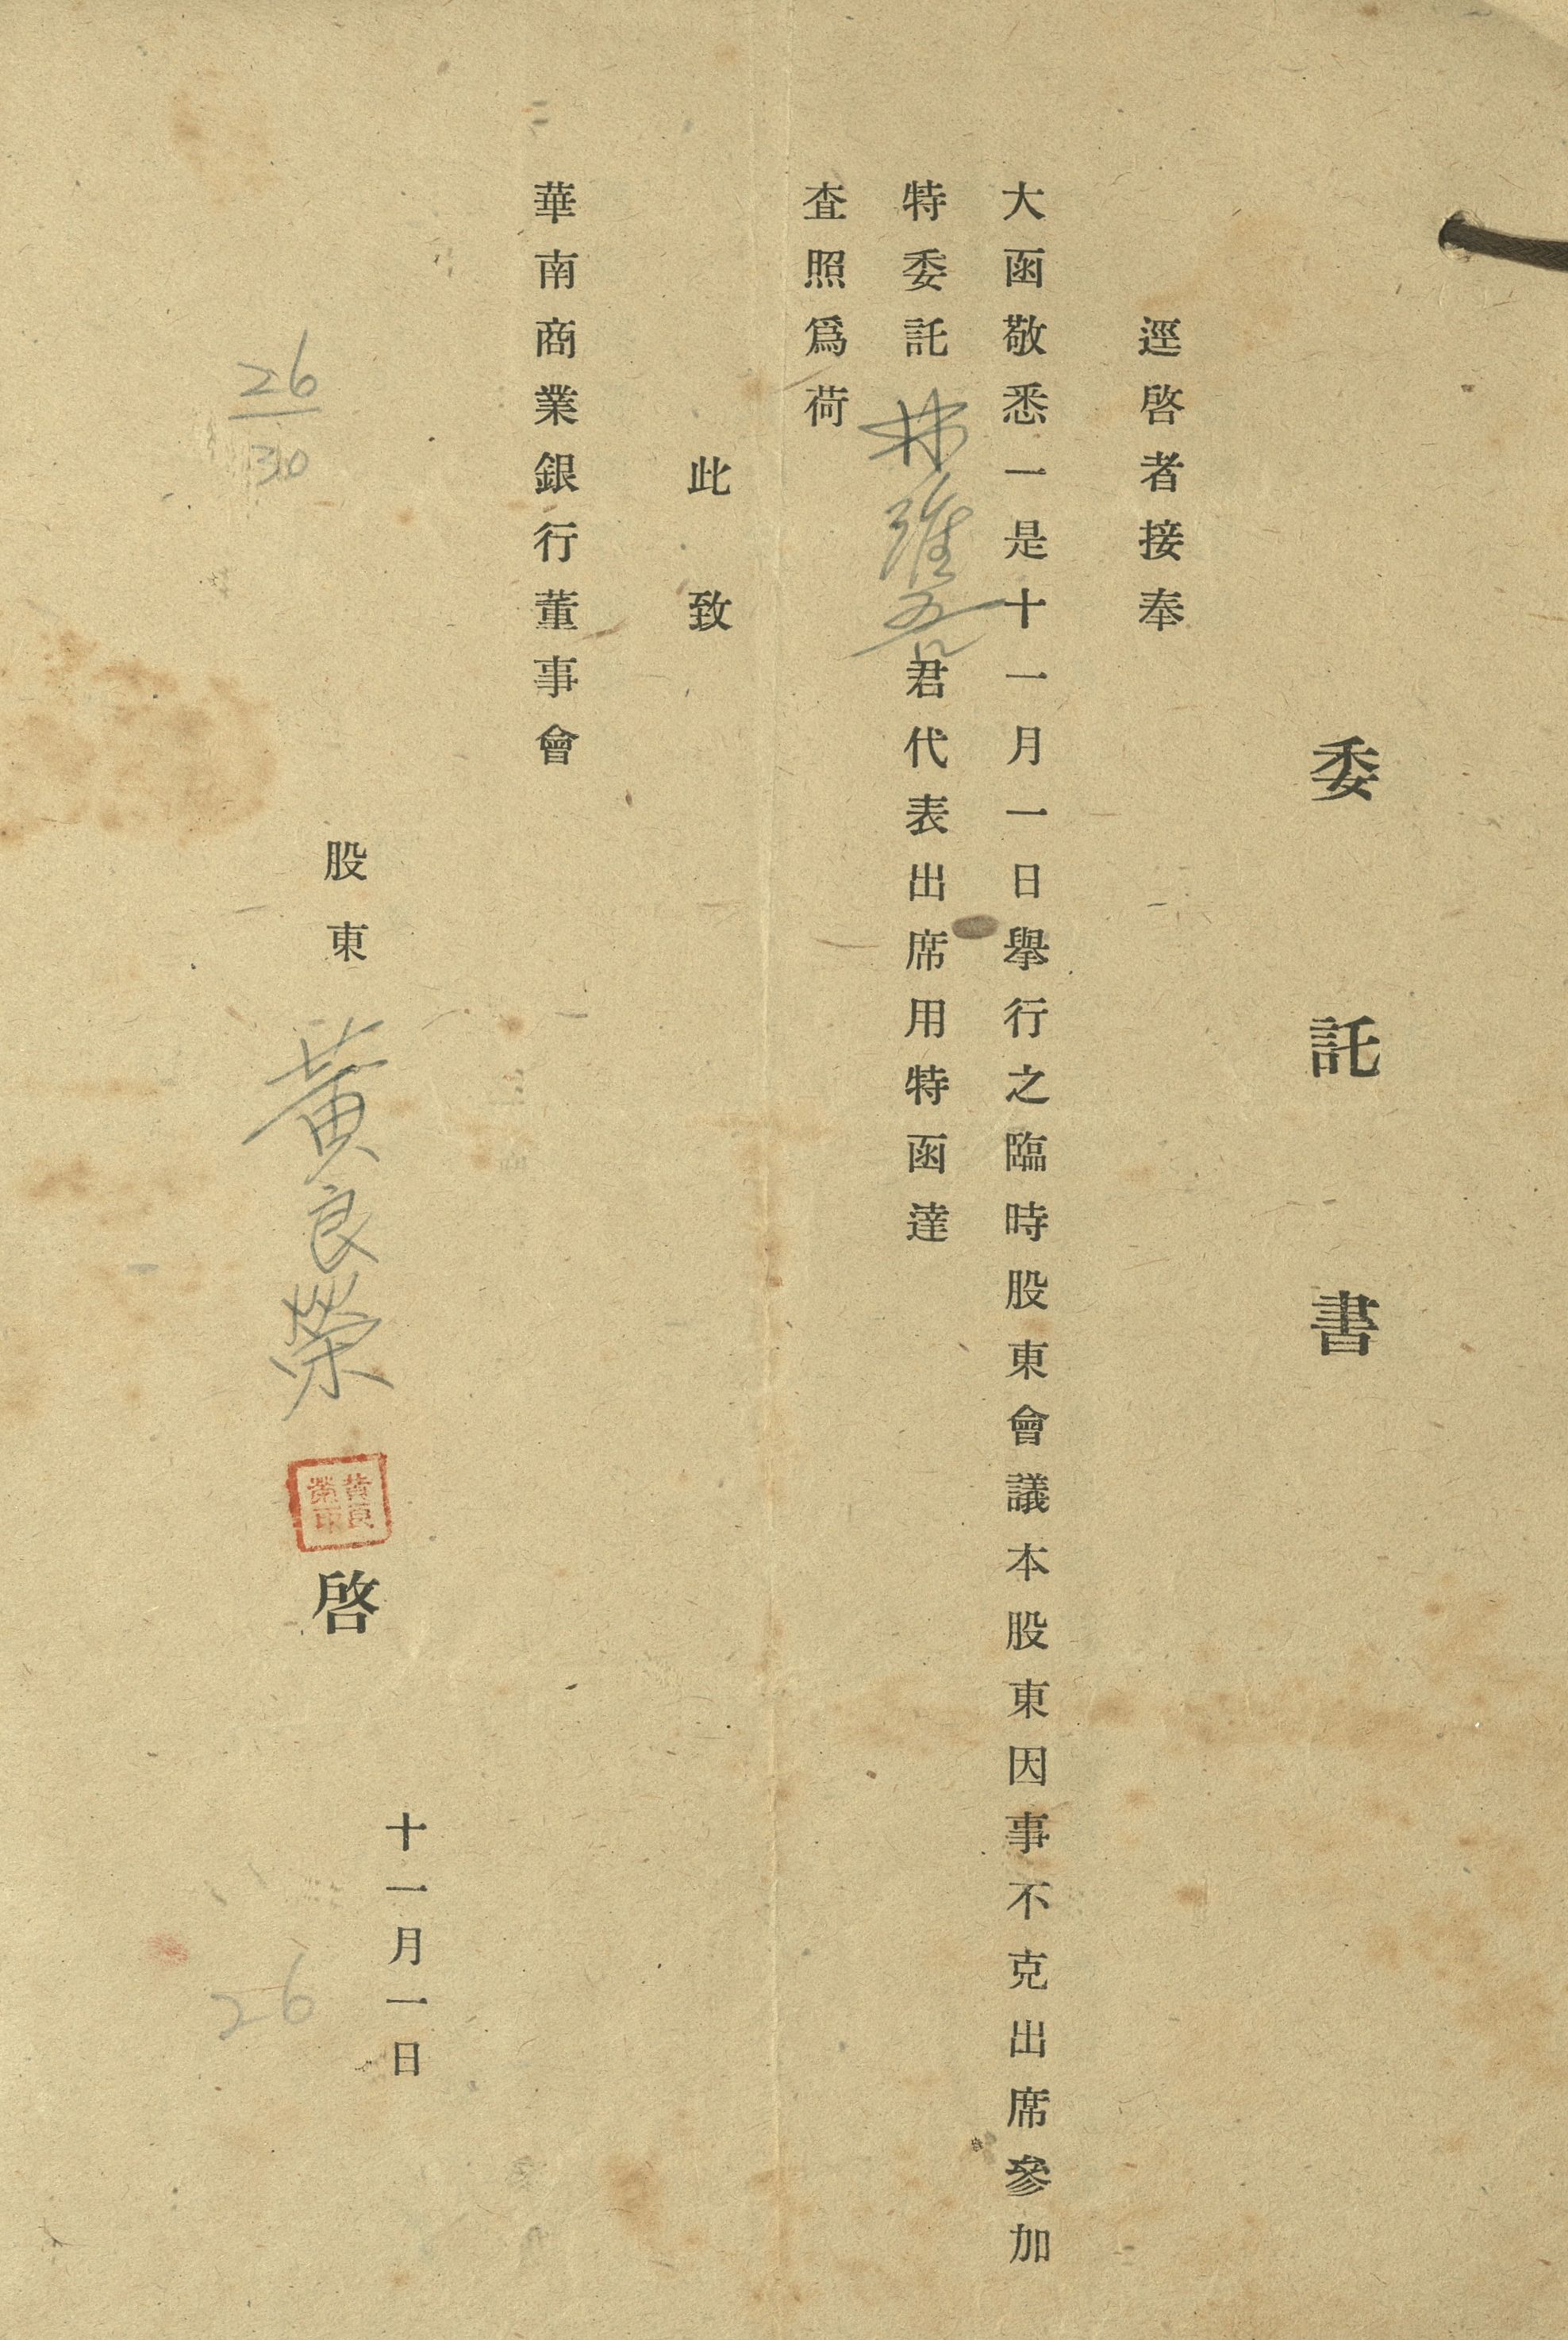 委託書
逕啓者接奉
大函敬悉一是十一月一日舉行之臨時股東會議本股東因事不克出席參加
特委託林維吾君代表出席用特函達
查照爲荷
此致
華南商業銀行董事會
十一月一日
股東 黃良榮 啓
黃良榮印
26
30
26